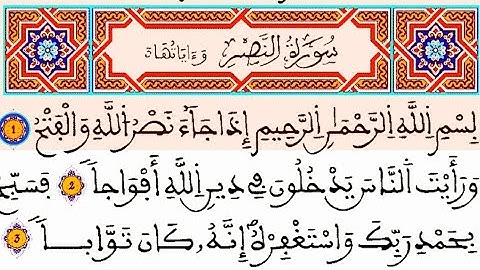 سُورَةُ النَّصْرِ وَءَايَاتُهَا ٣
بِسْمِ اِللَّهِ اِلرَّحْمَٰنِ اِلرَّحِيمِ إِذَا جَآءَ نَصْرُ اُللَّهِ وَالْفَتْحُ 1
وَرَأَيْتَ اَلنَّاسَ يَدْخُلُونَ فِي دِينِ اِللَّهِ أَفْوَاجاً 2 فَسَبِّحْ
بِحَمْدِ رَبِّكَ وَاسْتَغْفِرْهُ إِنَّهُۥ كَانَ تَوَّاباً 3